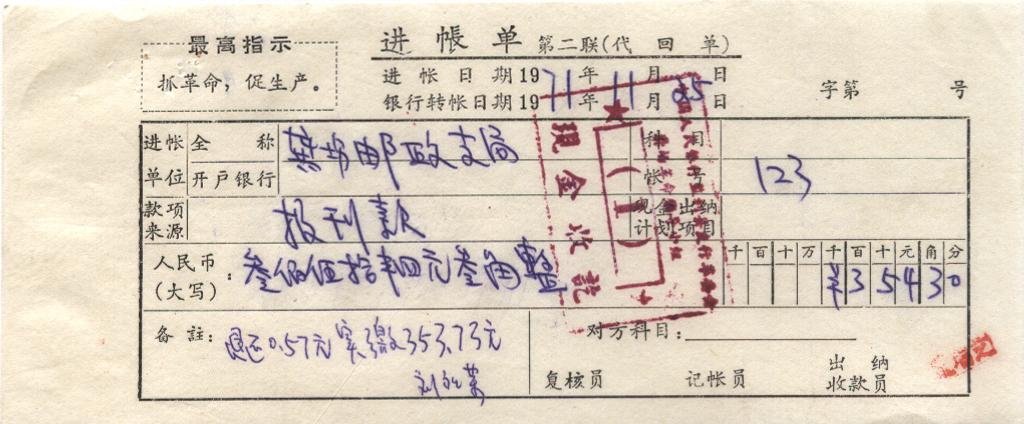 最高指示
抓革命，促生产。
进帐单 第二联(代回单)
进帐日期1971年11月25日
银行转帐日期1971年11月25日
字第 号
进帐单位 全称 邮政支局
开户银行
种 目
帐 号 123
款项来源 报刊款
现金出纳计划项目
人民币(大写)： 叁佰伍拾肆元叁角整
千百十万千百十元角分
¥35430
备註： 退还0.57元 实缴353.73元
刘
对方科目：
复核员 记帐员 出纳收款员
现金收讫
(1)